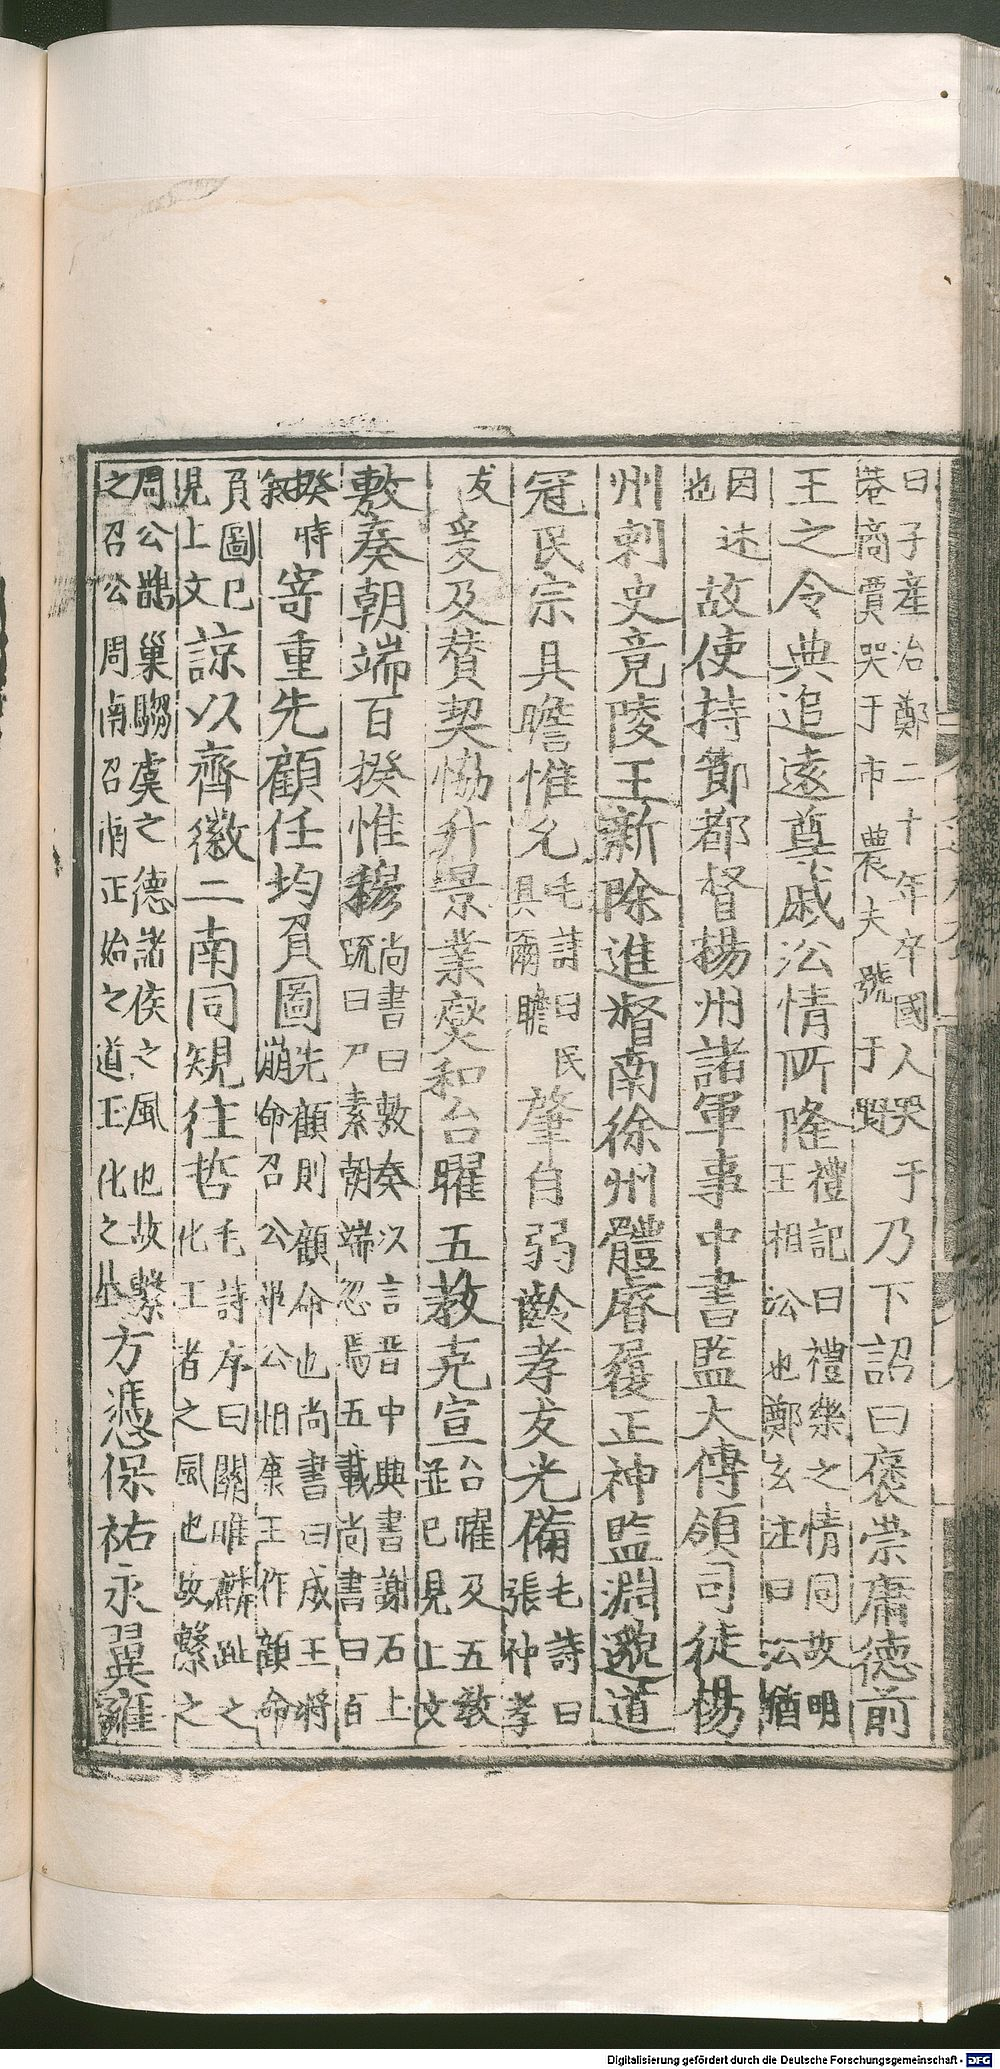 曰子産治鄭二十年卒國人哭于
巷商賈哭于市農夫號于野
乃下詔曰褒崇庸德前
王之令典追遠尊戚沿情所隆
禮記曰禮樂之情同故明
王相沿也鄭玄注曰沿猶
因述
也
故使持節都督揚州諸軍事中書監大傅領司徒楊
州刺史竟陵王新除進督南徐州體睿履正神監淵邈道
冠民宗具瞻惟允
毛詩曰民
具爾瞻
肇自弱齡孝友光備
毛詩曰
張仲孝
友
爰及贊契恊升景業燮和台曜五教克宣
台曜及五教
並已見上文
敷奏朝端百揆惟穆
尚書曰敷奏以言晋中興書謝石上
疏曰尸素朝端忽焉五載尚書曰百
揆時
敘
寄重先顧任均負圖
先顧則顧命也尚書曰成王將
崩命召公畢公相康王作顧命
負圖已
見上文
諒以齊徽二南同規往哲
毛詩序曰關雎麟趾之
化王者之風也故繫之
周公鵲巢騶虞之德諸侯之風也故繫
之召公周南召南正始之道王化之基
方憑保祐永翼雍
Digitalisierung gefördert durch die Deutsche Forschungsgemeinschaft - DFG